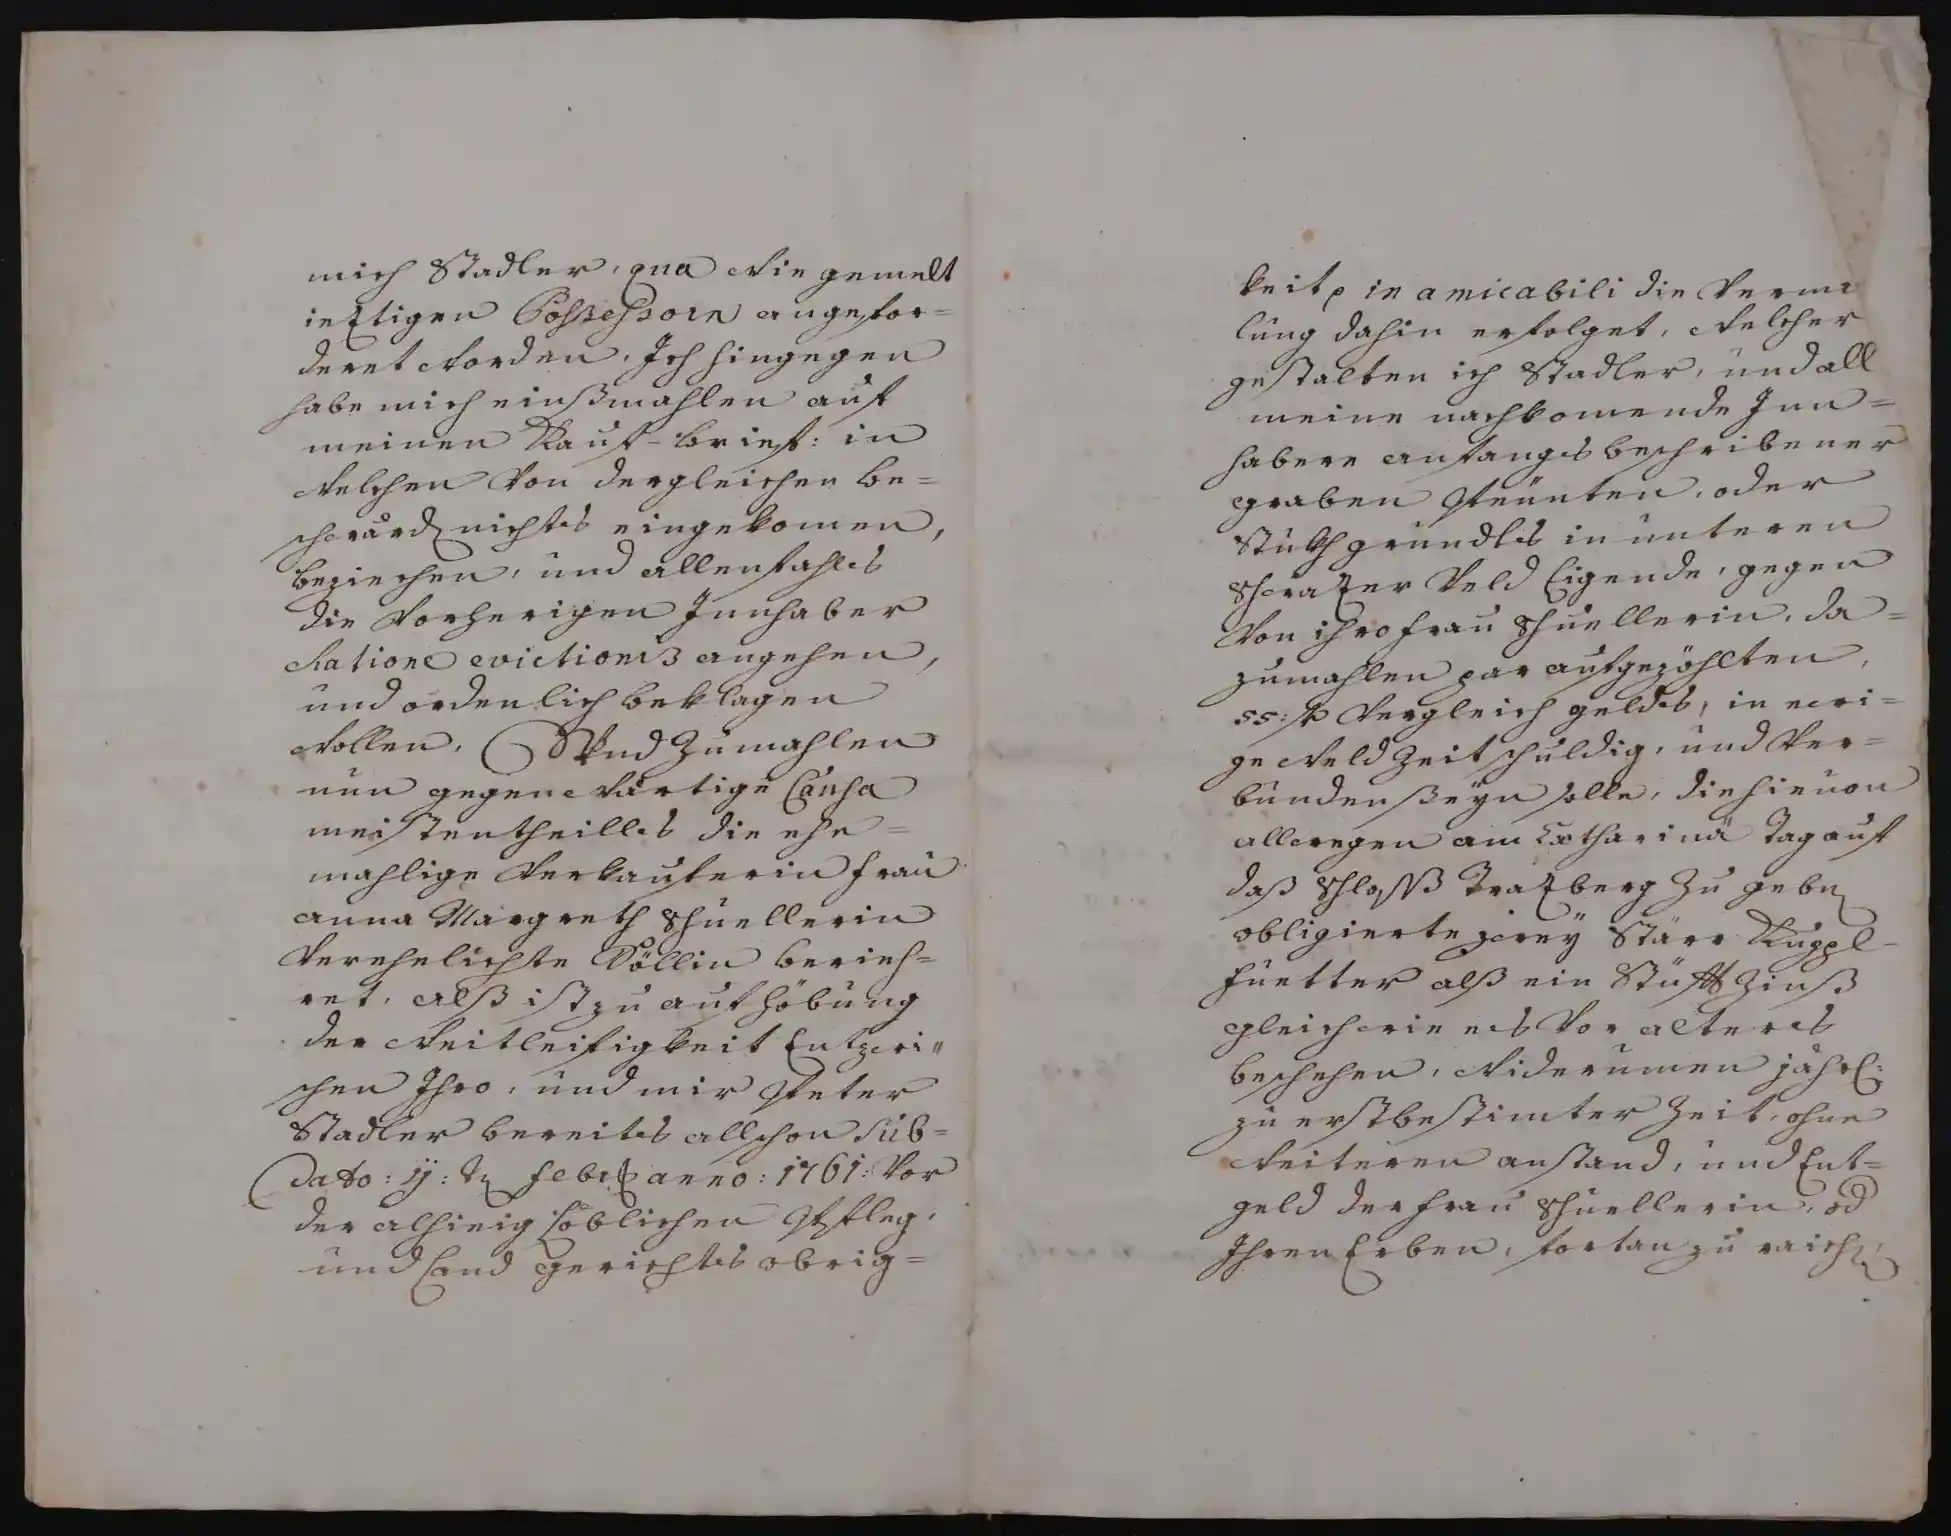 mich Stadler, qua wie gemelt
ieztigen Possessorn angefor=
deret worden, Ich hingegen
habe mich einßmahlen auf
meinen Kauf-brief: in
welchen von dergleichen be=
schwärd nichts eingekomen,
beziechen, und allenfahls
die vorherigen Innhaber
Ratione evictionis angehen,
und ordenlich beklagen
wollen. Und zumahlen
nun gegenwärtige Causa
meistentheills die ehe=
mahlige Verkauferin Frau
Anna Margreth Schuellerin
verehelichte Söllin berieh=
ret, alß ist zu aufhöbung
der weitleifigkeit Entzwi=
schen Ihro, und mir Peter
Stadler bereits allschon sub=
dato: 11: Febr anno: 1761: vor
der alhieig löblichen Pfleg,
und Landgerichts obrig=
keit in amicabili die
lung dahin erfolget, welcher
gestalten ich Stadler, und all
meine nachkomende Inn=
habere anfangs beschribener
graben Peünten, oder
Stukh gründls in unteren
Schwazer Veld ligende, gegen
von ihro Frau Schuellerin, da=
zumahlen par aufgezöhlten,
55: f Vergleich gelds, in ewi=
ge weld Zeit schuldig, und ver=
bunden seyn solle, die hieuon
allwegen am Catharinä Tag auf
daß Schloß Trazberg zu geben
obligierte zwey Stärr Kuppl-
fuetter alß ein Stüfft Zinß
gleichwie es vor alters
beschehen, widerumen jährl:
zu erstbestimter Zeit, ohne
weiteren anstand, und Ent=
geld der Frau Schuellerin, od
Ihren Erben, fortan zu raichen,